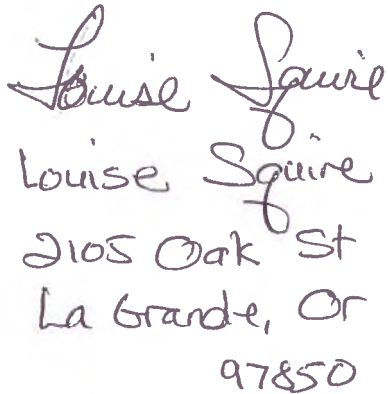 Louise Squire
Louise Squire
2105 Oak St
La Grande, Or
97850